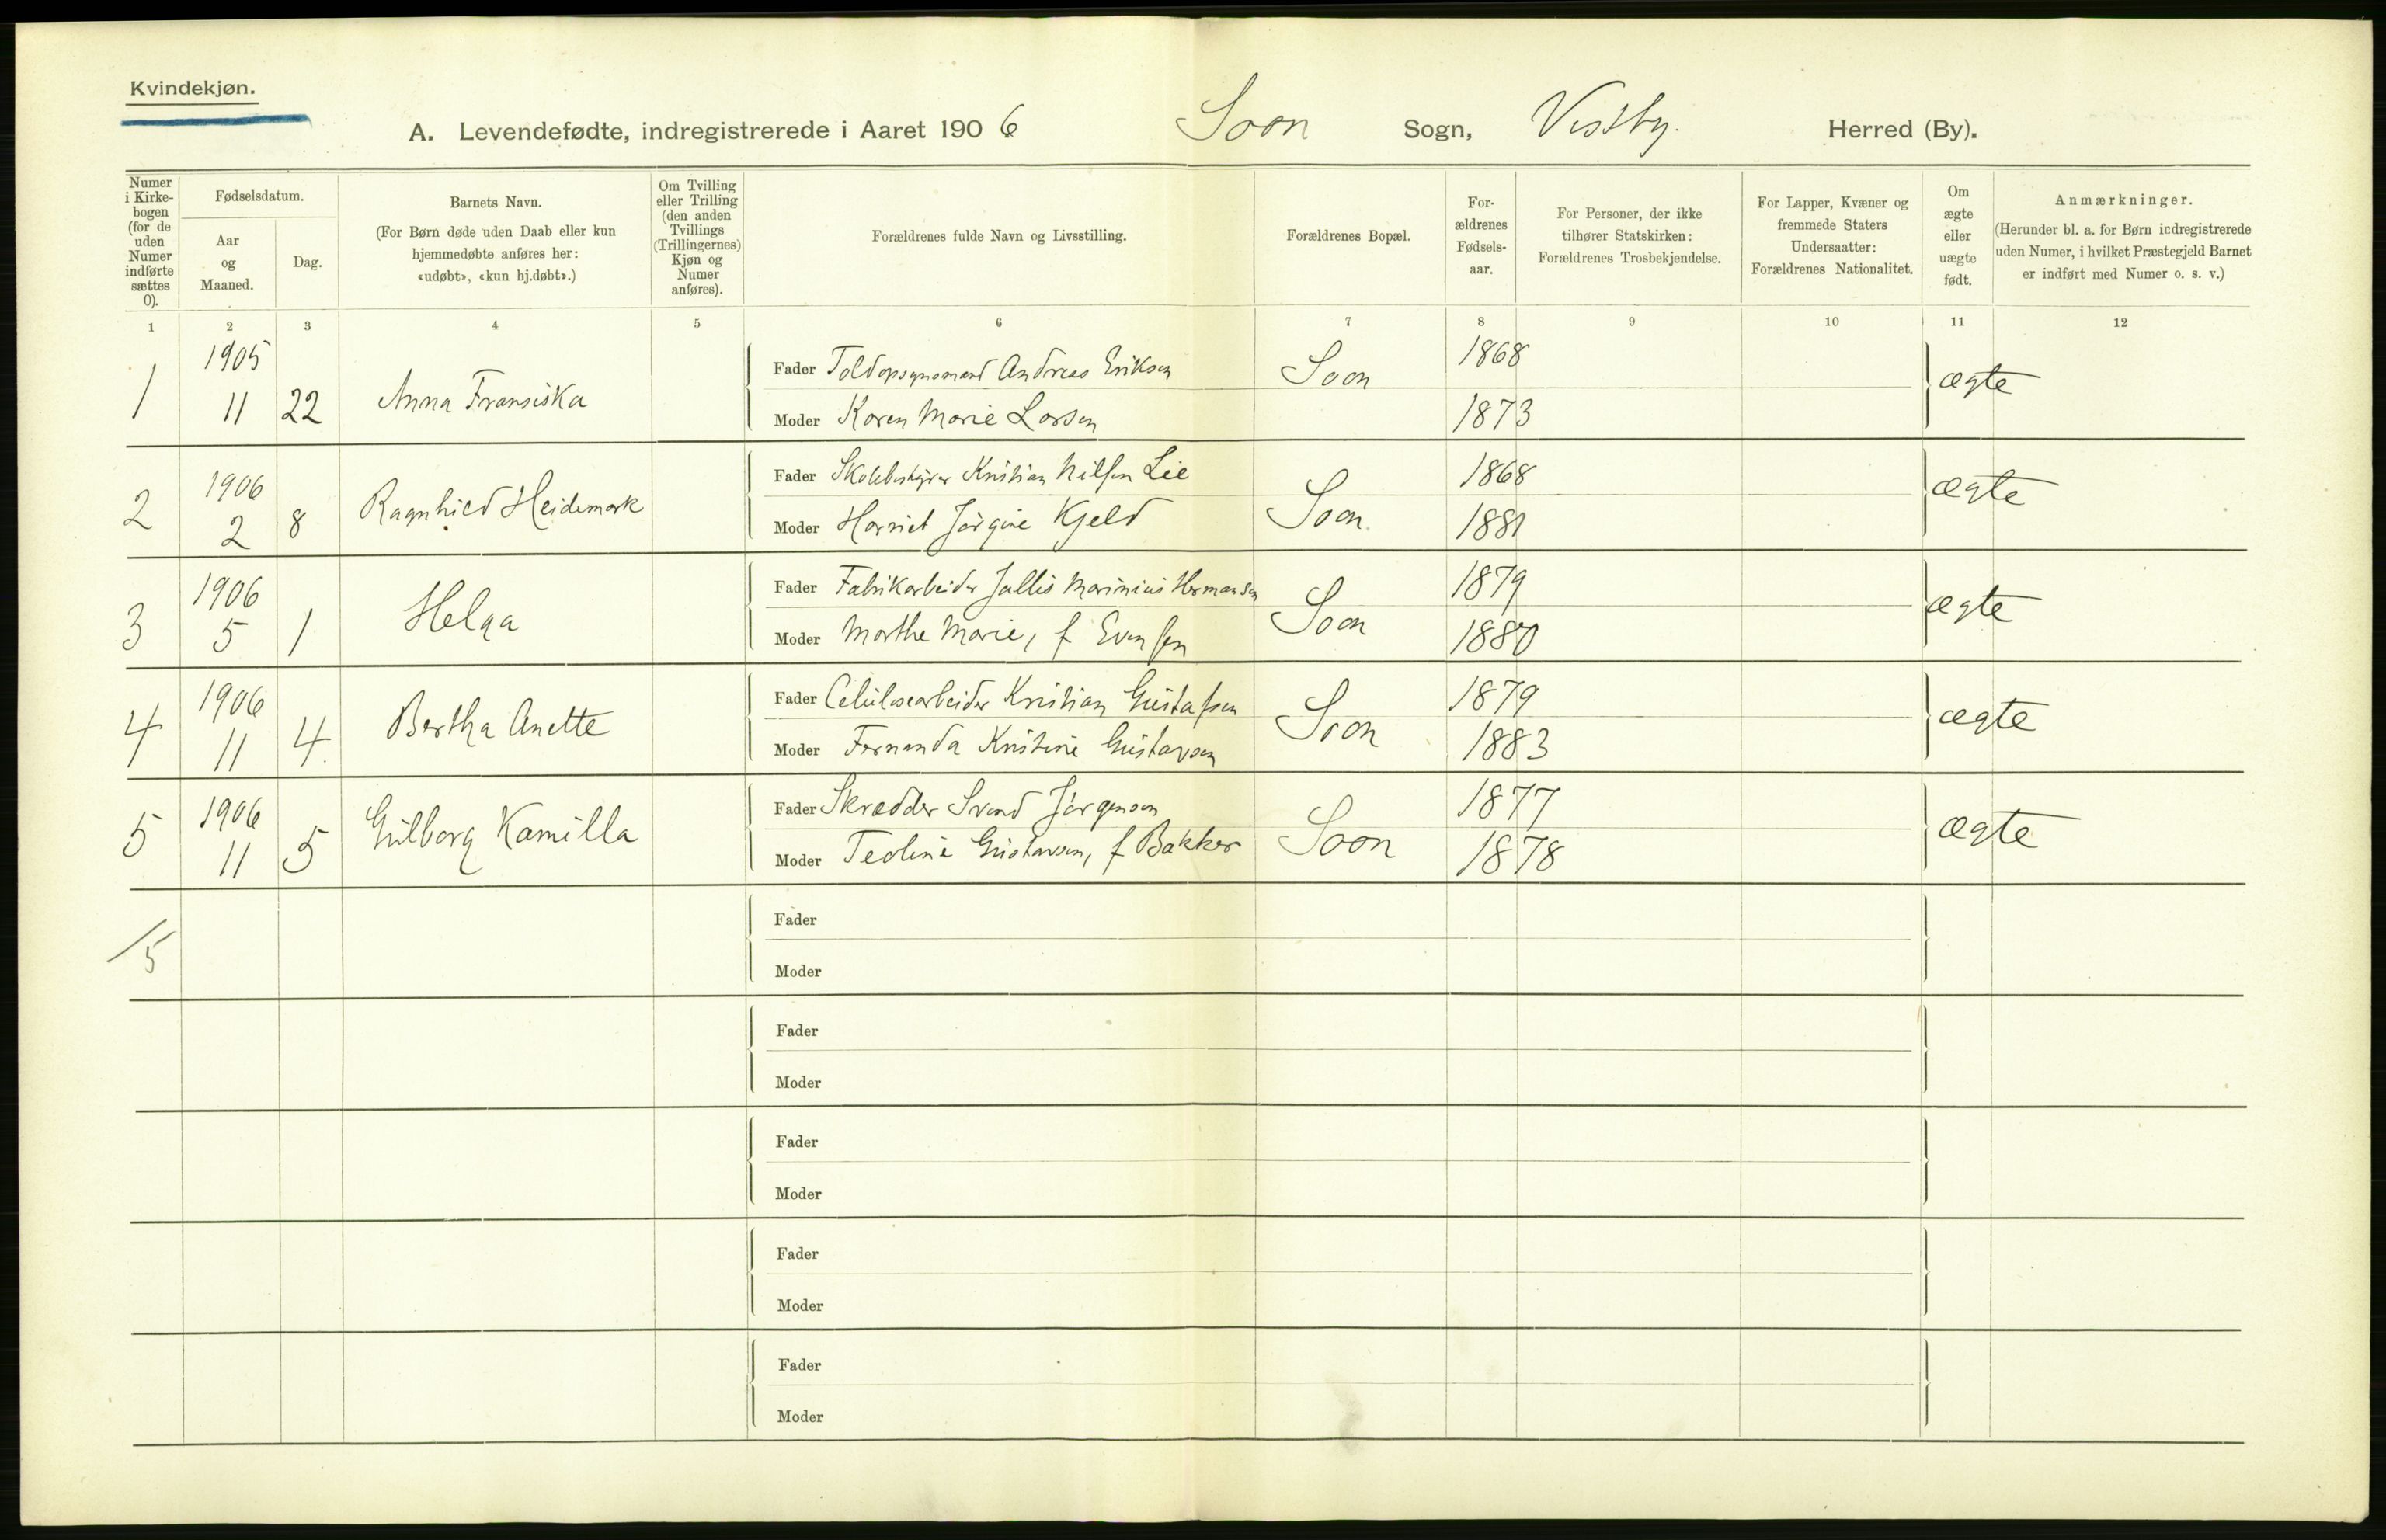 Kvindekjøn.
A. Levendefødte, indregistrerede i Aaret 1906 Soon Sogn, Vestby. Herred (By).
Numer i Kirkebogen (for de uden Numer indførte sættes 0).
Fødselsdatum.
Aar og Maaned.
Dag.
Barnets Navn.
(For Børn døde uden Daab eller kun hjemmedøbte anføres her: «udøbt», «kun hj.døbt».)
Om Tvilling eller Trilling (den anden Tvillings (Trillingernes) Kjøn og Numer anføres).
Forældrenes fulde Navn og Livsstilling.
Forældrenes Bopæl.
Forældrenes Fødselsaar.
For Personer, der ikke tilhører Statskirken: Forældrenes Trosbekjendelse.
For Lapper, Kvæner og fremmede Staters Undersaatter: Forældrenes Nationalitet.
Om ægte eller uægte født.
Anmærkninger.
(Herunder bl. a. for Børn indregistrerede uden Numer, i hvilket Præstegjeld Barnet er indført med Numer o. s. v.)
1 2 3 4 5 6 7 8 9 10 11 12
1 1905 11 22 Anna Fransiska
Fader Toldopsynsmand Andreas Eriksen Soon 1868 ægte
Moder Karen Marie Larsen 1873
2 1906 2 8 Ragnhild Heidemark
Fader Skolebestyrer Kristian Nilsen Lie Soon. 1868 ægte
Moder Harriet Jørgine Kjeld 1881
3 1906 5 1 Helga
Fader Fabrikarbeider Marinius Hermansen Soon 1879 ægte
Moder Marthe Marie, f Evensen 1880
4 1906 11 4. Bertha Anette
Fader Celulosearbeider Kristian Gustafsen Soon 1879 ægte
Moder Fernanda Kristine Gustavsen 1883
5 1906 11 5 Gulborg Kamilla
Fader Skrædder Svend Jørgensen Soon 1877 ægte
Moder Teoline Gustavsen, f Bakker 1878
/5
Fader
Moder
Fader
Moder
Fader
Moder
Fader
Moder
Fader
Moder